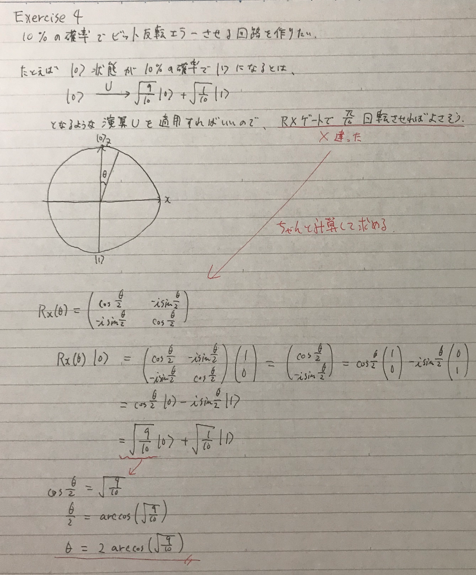 Exercise 4
10%の確率でビット反転エラーさせる回路を作りたい。
たとえば |0⟩状態が10%の確率で|1⟩になるとは、
|0⟩ —U→ √(9/10) |0⟩ + √(1/10) |1⟩
となるような演算Uを適用すればいいので、RXゲートでπ/10回転させればよさそう。
× 違った
|0⟩ z
θ
x
|1⟩
ちゃんと計算して求める
Rx(θ) = ( cos θ/2 -i sin θ/2 ; -i sin θ/2 cos θ/2 )
Rx(θ) |0⟩ = ( cos θ/2 -i sin θ/2 ; -i sin θ/2 cos θ/2 ) ( 1 ; 0 ) = ( cos θ/2 ; -i sin θ/2 ) = cos θ/2 ( 1 ; 0 ) - i sin θ/2 ( 0 ; 1 )
= cos θ/2 |0⟩ - i sin θ/2 |1⟩
= √(9/10) |0⟩ + √(1/10) |1⟩
cos θ/2 = √(9/10)
θ/2 = arccos(√(9/10))
θ = 2 arccos(√(9/10))